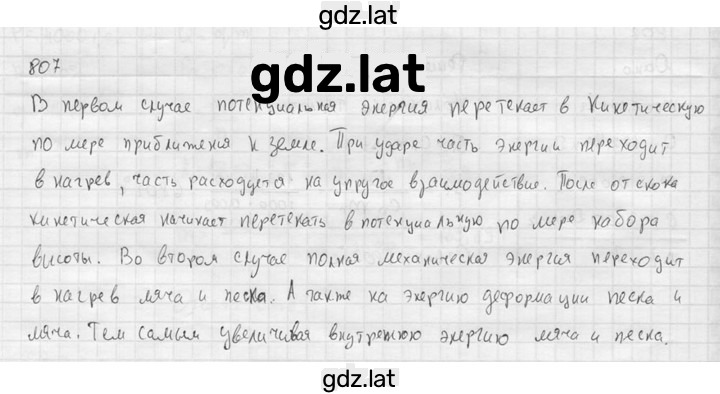 gdz.lat
807
gdz.lat
В первом случае потенциальная энергия перетекает в Кинетическую
по мере приближения к земле. При ударе часть энергии переходит
в нагрев, часть расходуется на упругое взаимодействие. После отскока
кинетическая начинает перетекать в потенциальную по мере набора
высоты. Во втором случае полная механическая энергия переходит
в нагрев мяча и песка. А также на энергию деформации песка и
мяча. Тем самым увеличивая внутреннюю энергию мяча и песка.
gdz.lat